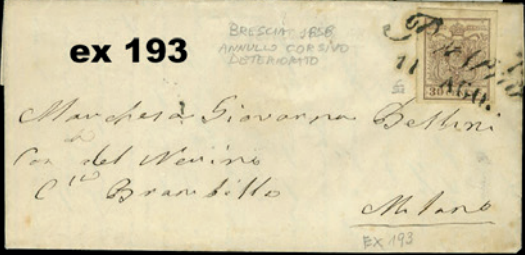 BRESCIA 1858
ANNULLO CORSIVO
DETERIORATO
ex 193
11 AGO.
30
Marchesa Giovanna Bellini
Con del Nerino
Cte Brambilla
Milano
EX 193